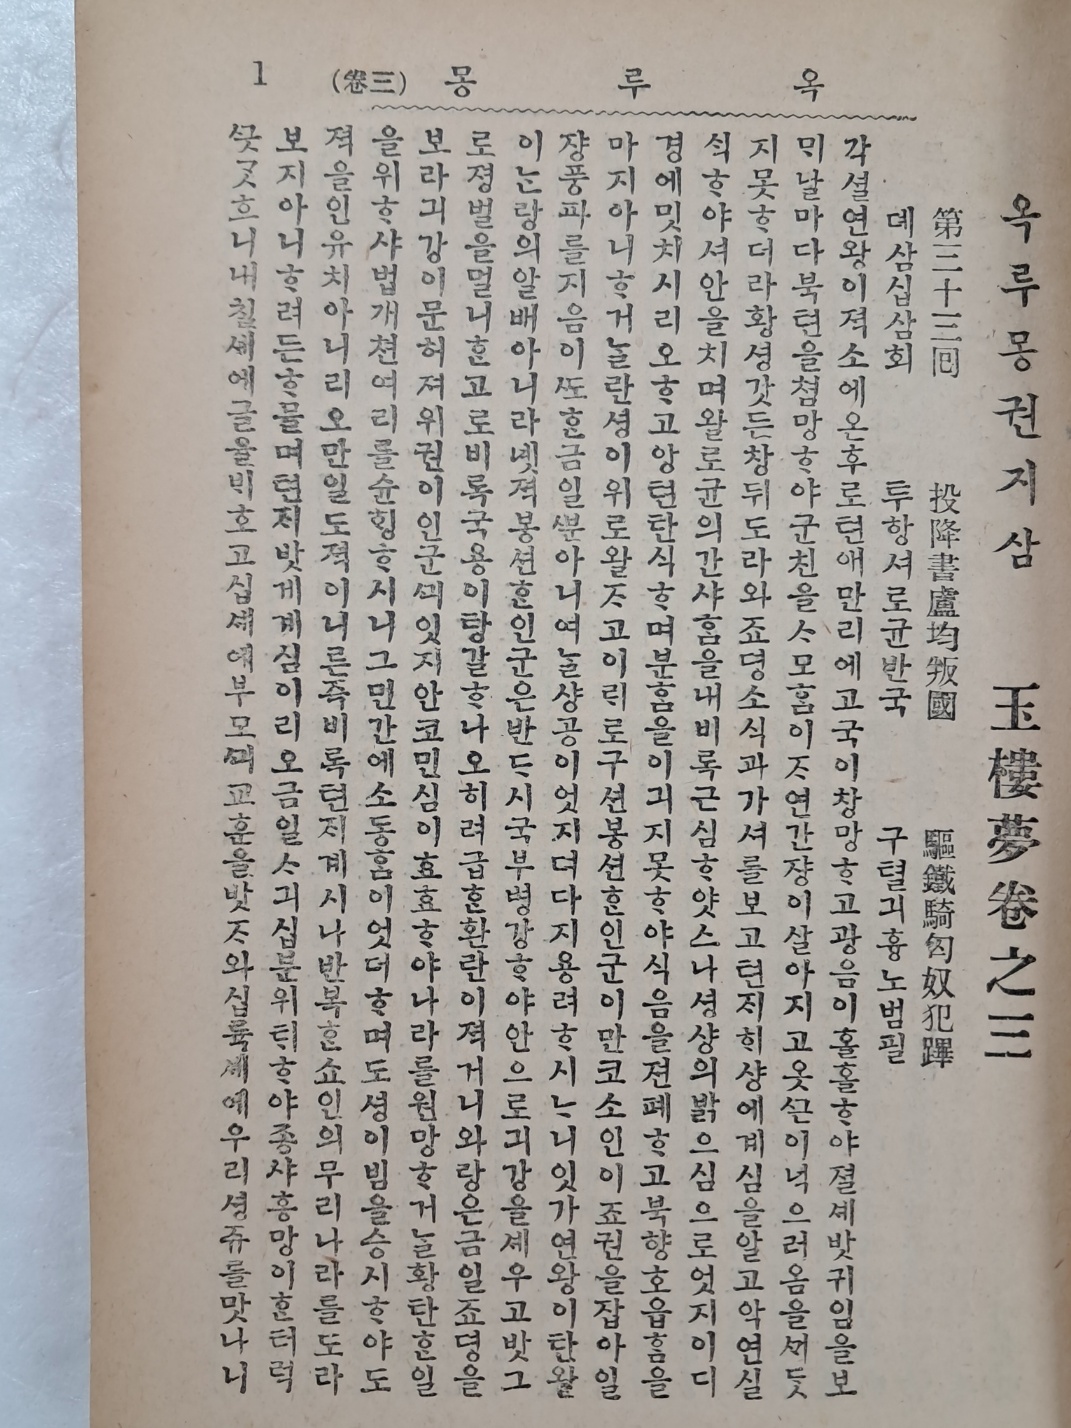 옥루몽 (卷三) 1
옥루몽권지삼 玉樓夢卷之三
第三十三回 投降書盧均叛國 驅鐵騎匈奴犯蹕
뎨삼십삼회 투항셔로균반국 구텰긔흉노범필
각셜연왕이젹소에온후로텬애만리에고국이창망ᄒᆞ고광음이홀홀ᄒᆞ야졀셰밧귀임을보
ᄆᆡ날마다북텬을쳠망ᄒᆞ야군친을ᄉᆞ모홈이ᄌᆞ연간쟝이살아지고옷ᄭᅳᆫ이넉으러옴을ᄭᆡ듯
지못ᄒᆞ더라황셩갓든창뒤도라와죠뎡소식과가셔를보고텬ᄌᆡᄒᆡ샹에계심을알고악연실
ᄉᆡᆨᄒᆞ야셔안을치며왈로균의간샤홈을내비록근심ᄒᆞ얏스나셩샹의밝으심으로엇지이디
경에밋치시리오ᄒᆞ고앙텬탄식ᄒᆞ며분홈을이긔지못ᄒᆞ야식음을젼폐ᄒᆞ고북향호읍홈을
마지아니ᄒᆞ거ᄂᆞᆯ란셩이위로왈ᄌᆞ고이ᄅᆡ로구션봉션ᄒᆞᆫ인군이만코소인이죠권을잡아일
쟝풍파를지음이ᄯᅩᄒᆞᆫ금일ᄲᅮᆫ아니여ᄂᆞᆯ샹공이엇지뎌다지용려ᄒᆞ시ᄂᆞ니잇가연왕이탄왈
이ᄂᆞᆫ랑의알배아니라녯젹봉션ᄒᆞᆫ인군은반ᄃᆞ시국부병강ᄒᆞ야안으로긔강을셰우고밧그
로졍벌을멀니ᄒᆞᆫ고로비록국용이탕갈ᄒᆞ나오히려급ᄒᆞᆫ환란이젹거니와랑은금일죠뎡을
보라긔강이문허져위권이인군ᄭᅴ잇지안코민심이효효ᄒᆞ야나라를원망ᄒᆞ거ᄂᆞᆯ황탄ᄒᆞᆫ일
을위ᄒᆞ샤법개쳔여리를슌ᄒᆡᆼᄒᆞ시니그민간에소동홈이엇더ᄒᆞ며도셩이빔을승시ᄒᆞ야도
젹을인유치아니리오만일도젹이니른즉비록텬ᄌᆡ계시나반복ᄒᆞᆫ쇼인의무리나라를도라
보지아니ᄒᆞ려든ᄒᆞ물며텬ᄌᆡ밧게계심이리오금일ᄉᆞ긔십분위ᄐᆡᄒᆞ야종샤흥망이ᄒᆞᆫ터럭
ᄭᅳᆺᄀᆞᆺ흐니내칠셰에글을ᄇᆡ호고십셰에부모ᄭᅴ교훈을밧ᄌᆞ와십륙셰에우리셩쥬를맛나니